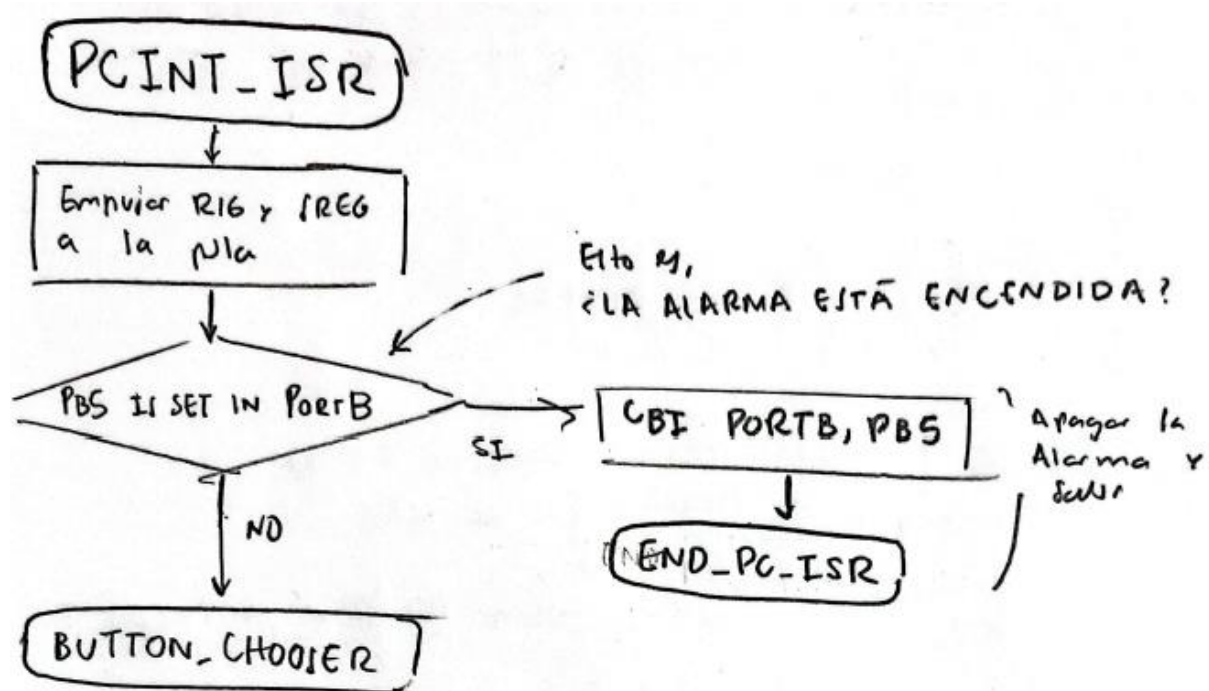 PCINT_ISR
Empujar R16 y SREG
a la pila
Esto es,
¿LA ALARMA ESTÁ ENCENDIDA?
PB5 IS SET IN PORTB
SI
CBI PORTB, PB5
Apagar la
Alarma y
Salir
NO
END_PC_ISR
BUTTON_CHOOSER